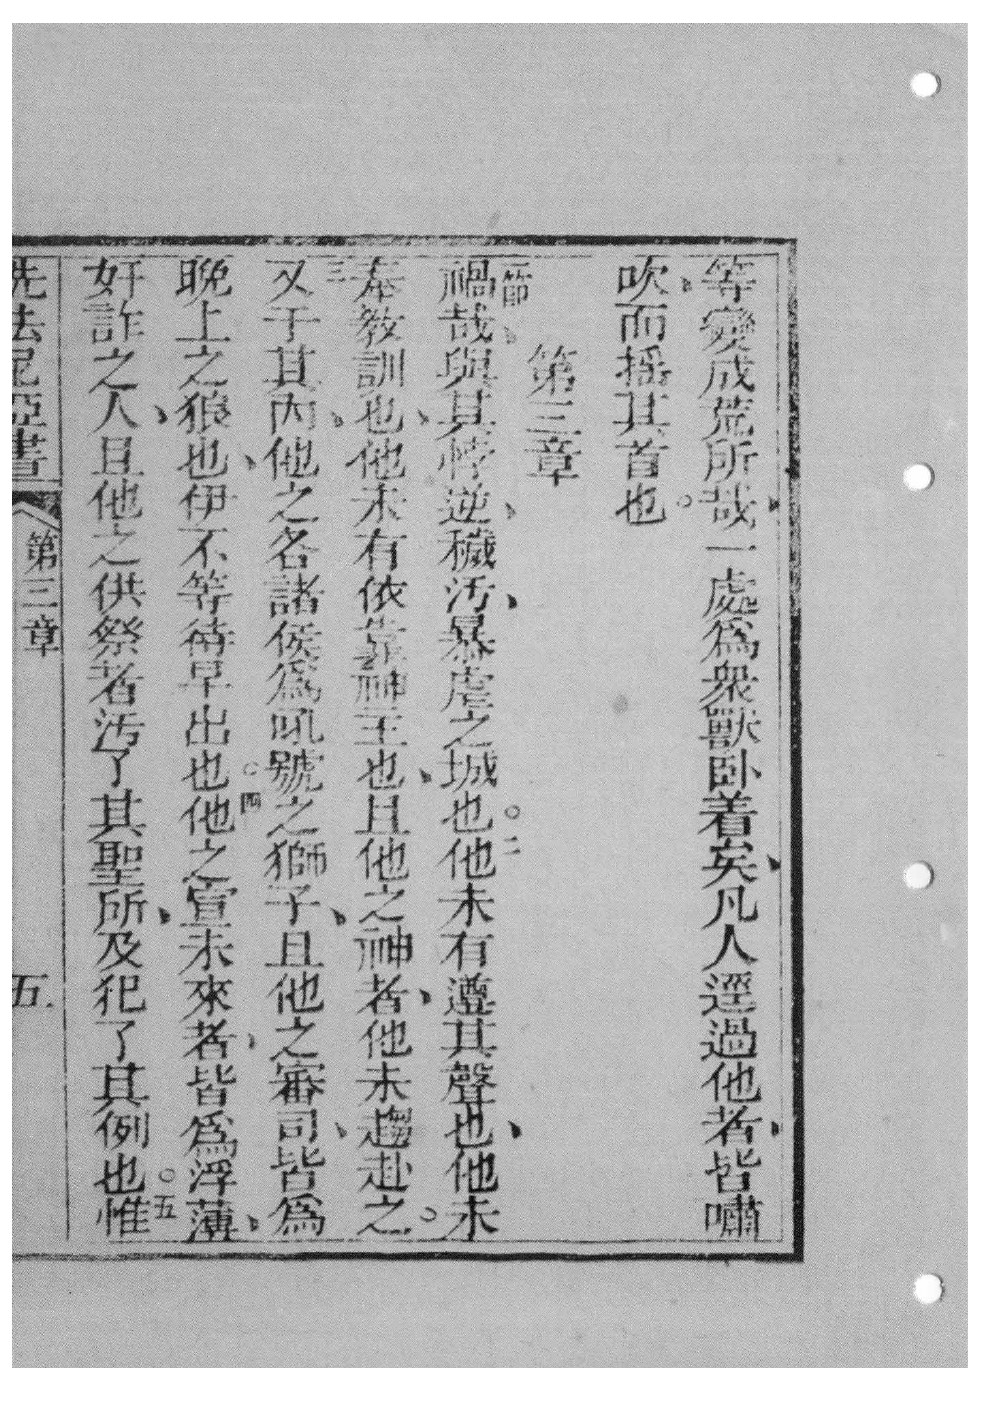 等變成荒所哉、一處為衆獸卧着矣、凡人逕過他者、皆嘯
吹、而揺其首也。
第三章
一節禍哉、與其悖逆、穢汚、暴虐之城也。二他未有遵其聲也、他未
奉教訓也、他未有依靠神主也、且他之神者、他未趨赴之。
三又于其內、他之各諸侯爲吼號之獅子、且他之審司、皆爲
晩上之狼也、伊不等待早出也。四他之宣未來者、皆爲浮薄、
奸詐之人、且他之供祭者汚了其聖所、及犯了其例也。五惟
先法尼亞書
第三章
五